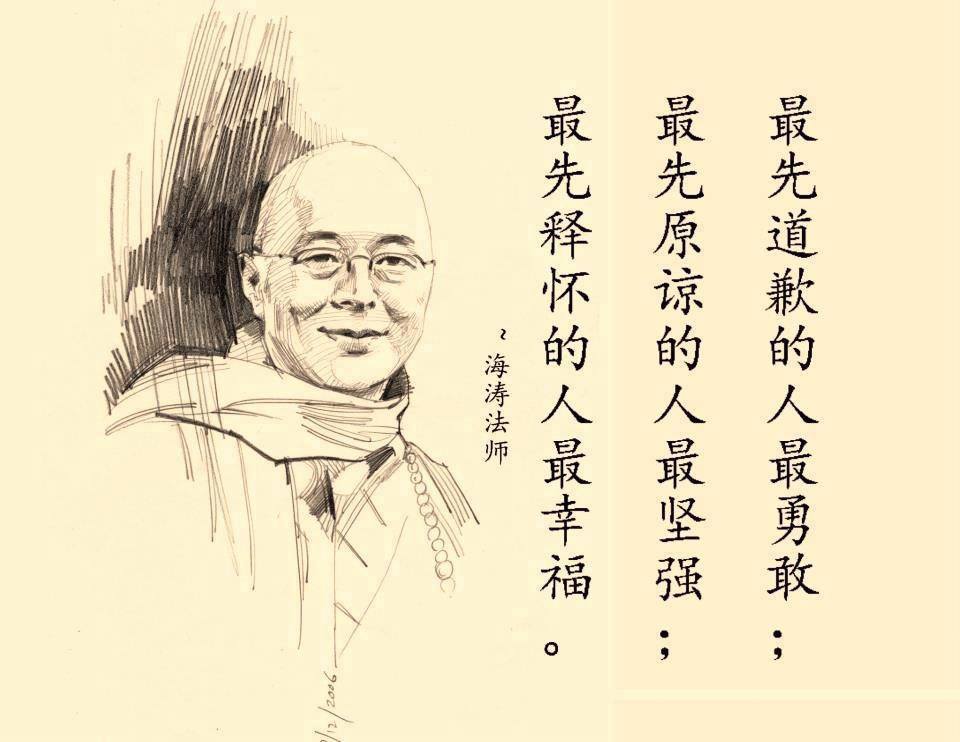 最先道歉的人最勇敢；
最先原谅的人最坚强；
最先释怀的人最幸福。
~海涛法师
/12/2006